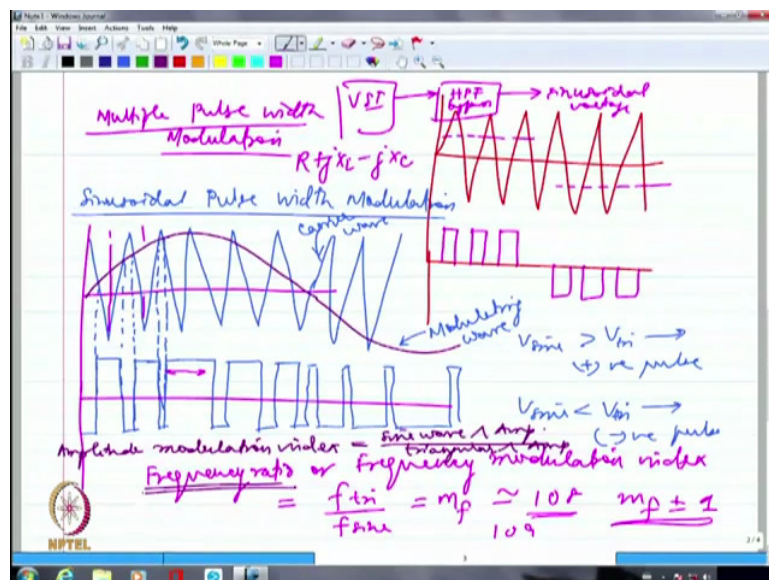 Note1 - Windows Journal
File Edit View Insert Actions Tools Help
Whole Page
Multiple Pulse width
Modulation
VSI
HPF
bypass
sinusoidal
voltage
R+jXL-jXC
Sinusoidal Pulse width Modulation
carrier
wave
Modulating
wave
Vsine > Vtri →
(+)ve pulse
Vsine < Vtri →
(-)ve pulse
Amplitude modulation index = sine wave ∧ Amp.
triangular ∧ Amp.
Frequency ratio or Frequency modulation index
= f tri / f sine = mf ≃ 108 mf ± 1
109
NPTEL
3
2/4